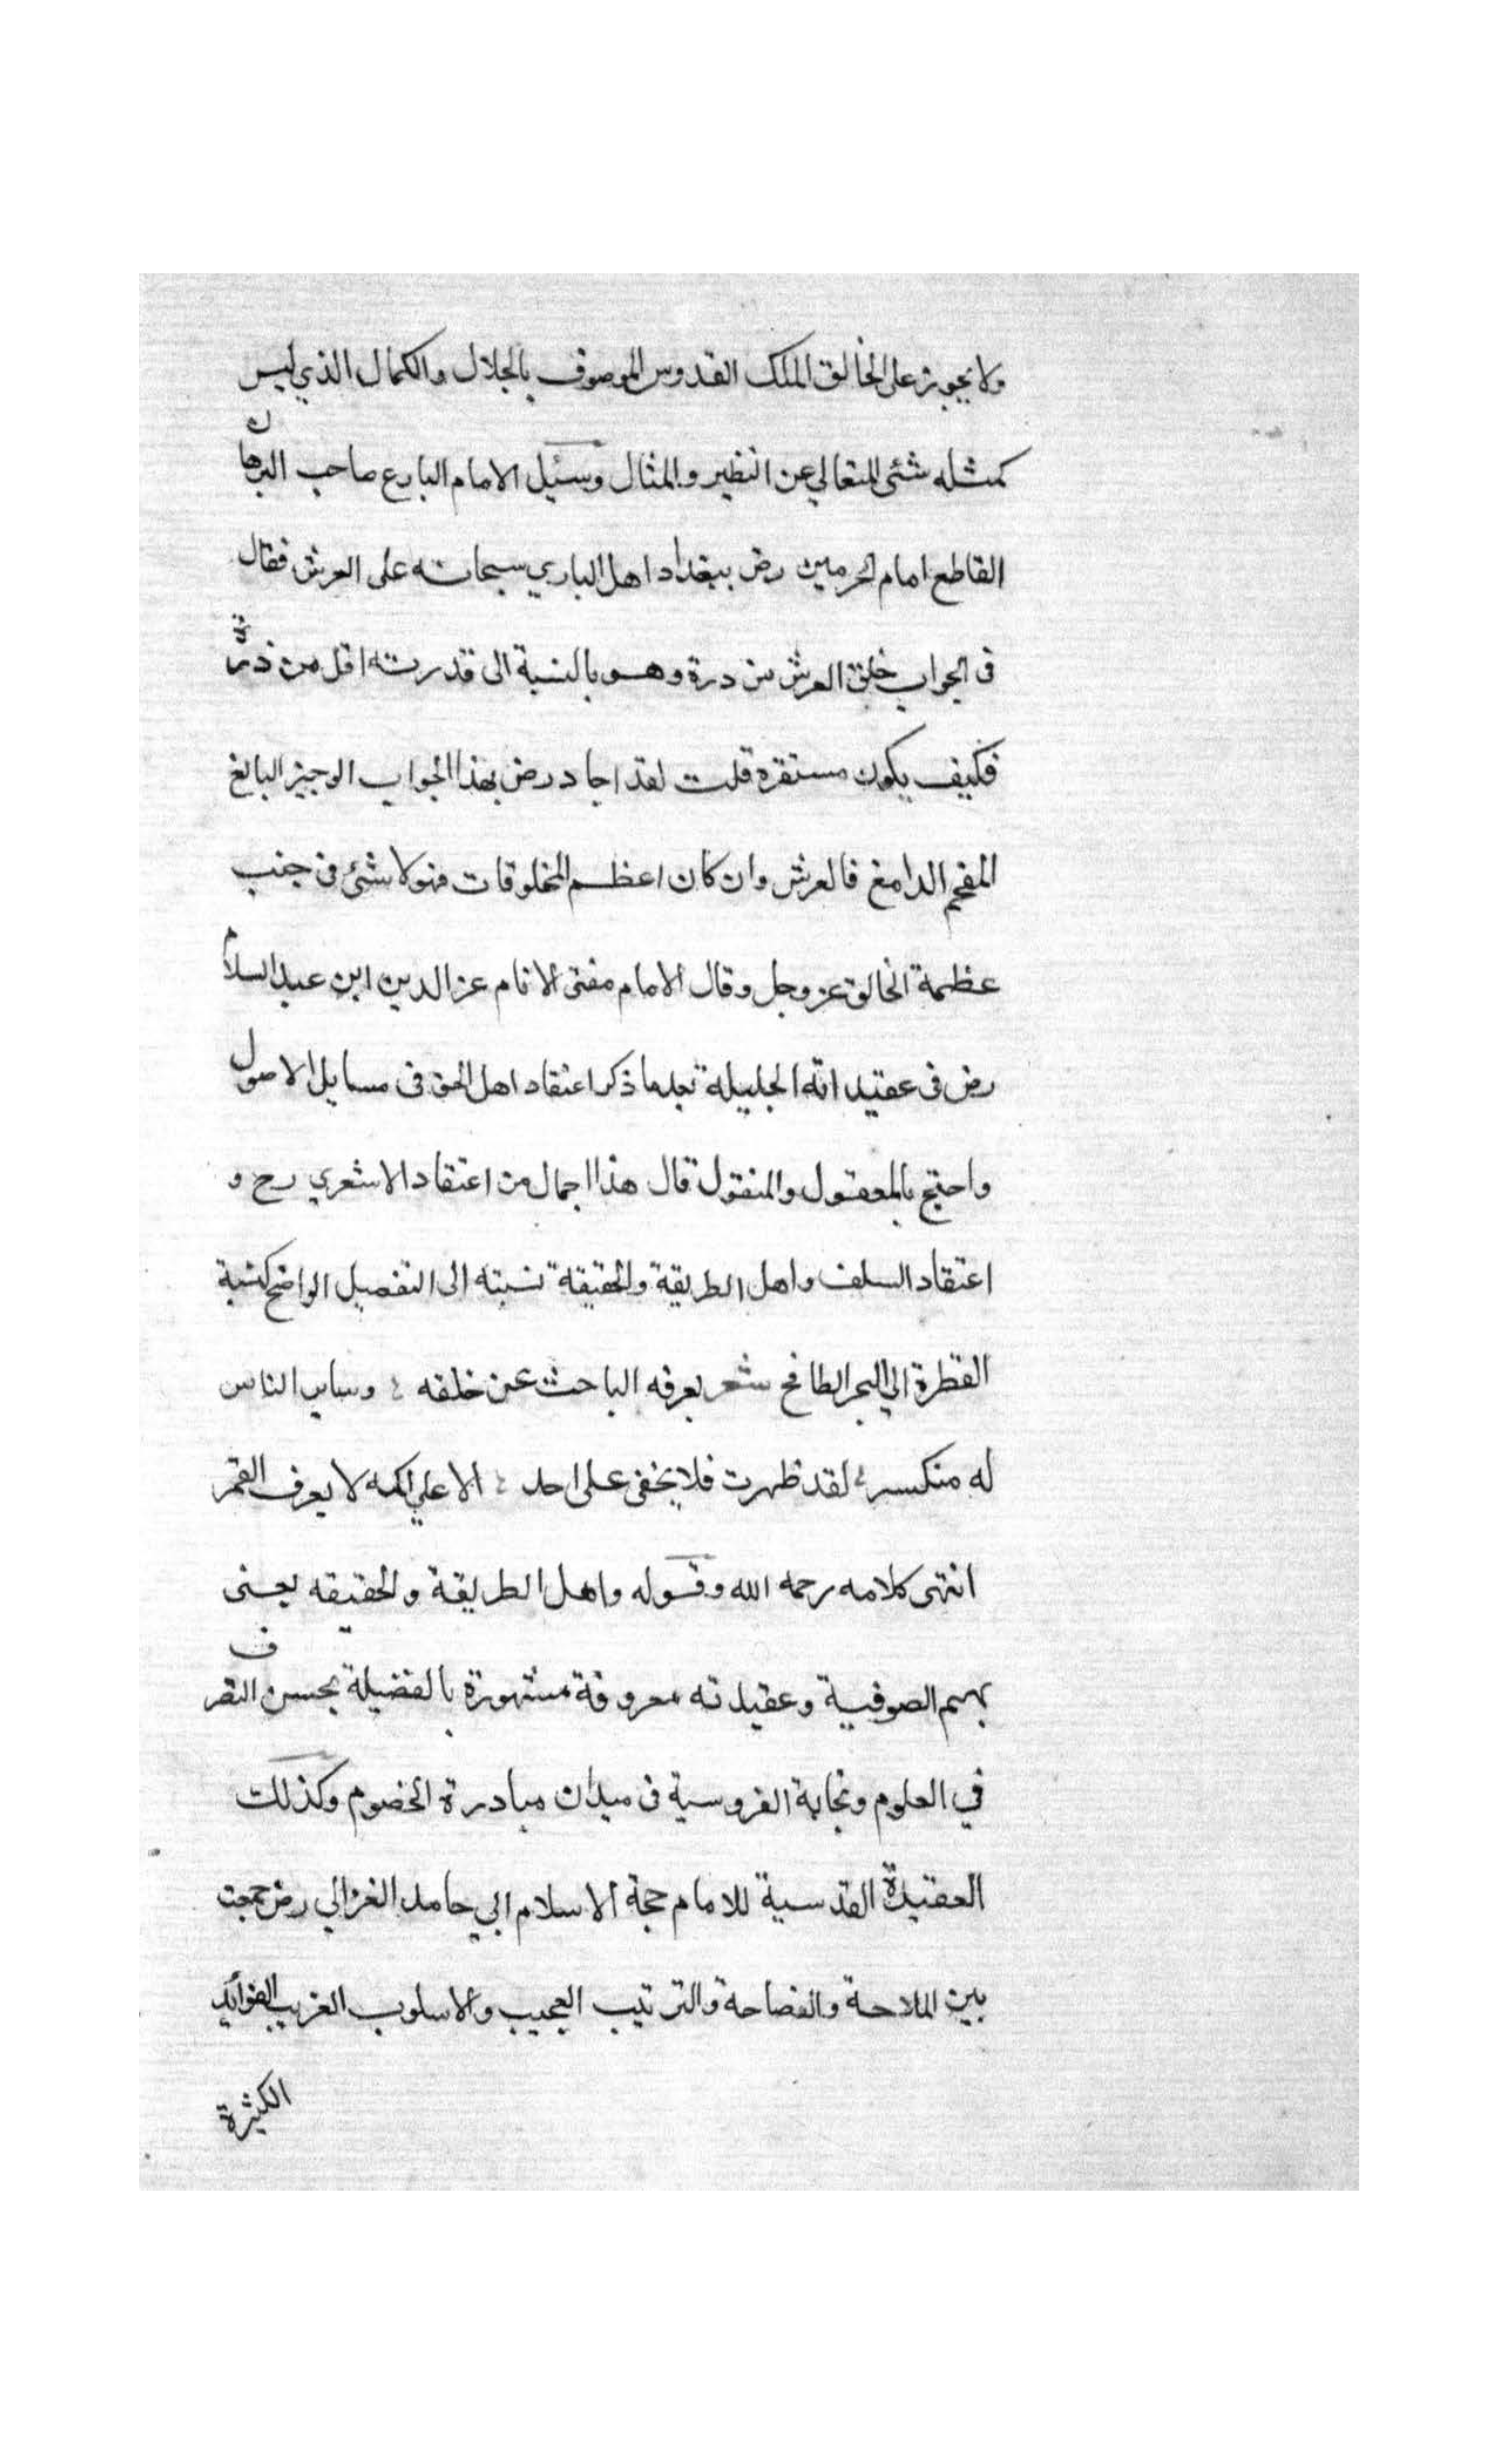 ولا يجوز على الخالق الملك القدوس الموصوف بالجلال والكمال الذي ليس
كمثله شئ المتعالي عن النظير والمثال وسئيل الامام البارع صاحب البرهان
القاطع امام الحرمين رض ببغداد اهل الباري سبحانه على العرش فقال
في الجواب خلق العرش من درة وهو بالنسبة الى قدرته اقل من ذرة
فكيف يكون مستقره قلت لقد اجاد رض بهذا الجواب الوجيز البالغ
المفحم الدامغ فالعرش وان كان اعظم المخلوقات فهو لا شئ في جنب
عظمة الخالق عز وجل وقال الامام مفتى الانام عز الدين ابن عبد السلام
رض في عقيداته الجليلة بعد ما ذكر اعتقاد اهل الحق في مسايل الاصول
واحتج بالمعقول والمنقول قال هذا اجمال من اعتقاد الاشعري رح و
اعتقاد السلف واهل الطريقة والحقيقة نسبته الى التفصيل الواضح كنسبة
القطرة الي البحر الطافح شعر يعرفه الباحث عن خلقه ؛ وساير الناس
له منكسر ؛ لقد ظهرت فلا يخفى على احد ؛ الا علي اكمه لا يعرف القمر
انتهى كلامه رحمه الله وقوله واهل الطريقة والحقيقه يعنى
بهم الصوفية وعقيدته معروفة مشهورة بالفضيلة بحسن التصرف
في العلوم ونجابة الفروسية في ميدان مبادرة الخصوم وكذلك
العقيدة القدسية للامام حجة الاسلام ابي حامد الغزالي رض جمعت
بين الملاحة والفصاحة والترتيب العجيب والاسلوب الغريب الفوائد
الكثيرة